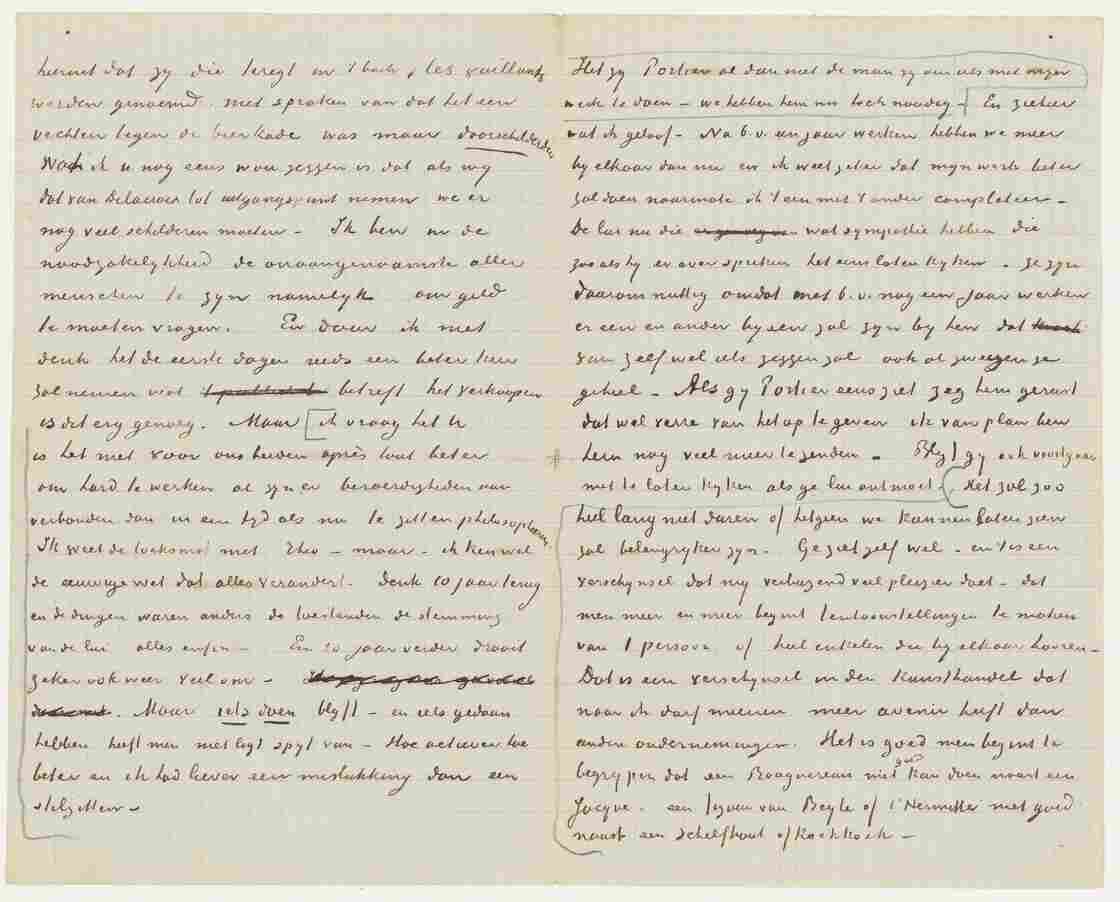 hieruit dat zy die teregt in 't boek, les vaillants
werden genoemd, niet spraken van dat het een
vechten tegen de bierkade was maar doorschilderden
Wat ik u nog eens wou zeggen is dat als wy
dat van Delacroix tot uitgangspunt nemen we er
nog veel schilderen moeten – Ik ben in de
noodzakelykheid de onaangenaamste aller
menschen te zyn namelyk om geld
te moeten vragen. En daar ik niet
denk het de eerste dagen reeds een beter keer
zal nemen wat betreft het verkoopen
is dit erg genoeg. Maar ik vraag het U
is het niet voor ons beiden après tout beter
om hard te werken al zyn er beroerdigheden aan
verbonden dan in een tyd als nu te zitten philosopheeren.
Ik weet de toekomst niet Theo – maar – ik ken wel
de eeuwige wet dat alles verandert. denk 10 jaar terug
en de dingen waren anders de toestanden de stemming
van de lui alles enfin – En 10 jaar verder draait
zeker ook weer veel om –
Maar iets doen blyft – en iets gedaan
hebben heeft men niet ligt spyt van – Hoe actiever hoe
beter en ik had liever een mislukking dan een
stilzitten –
Het zy Portier al dan niet de man zy om iets met myn
werk te doen – we hebben hem nu toch noodig – En ziehier
wat ik geloof – Na b.v. een jaar werken hebben we meer
by elkaar dan nu en ik weet zeker dat myn werk beter
zal doen naarmate ik 't een met 't ander completeer –
De lui nu die wat sympathie hebben die
zooals hy er over spreken het eens laten kyken – ze zyn
daarom nuttig omdat met b.v. nog een jaar werken
er een en ander byeen zal zyn by hen dat
van zelf wel iets zeggen zal ook al zweegen ze
geheel – Als gy Portier eens ziet zeg hem gerust
dat wel verre van het op te geven ik van plan ben
hem nog veel meer te zenden – Blyf gy ook voortgaan
met te laten kyken als ge lui ontmoet – Het zal zoo
heel lang niet duren of hetgeen we kunnen laten zien
zal belangryker zyn – Ge ziet zelf wel – en 't is een
verschynsel dat my verbazend veel plezier doet – dat
men meer en meer begint tentoonstellingen te maken
van 1 persoon, of heel enkelen die by elkaar hooren –
Dat is een verschynsel in den kunsthandel dat
naar ik durf meenen meer avenir heeft dan
andere ondernemingen. Het is goed men begint te
begrypen dat een Bouguereau niet goed kan doen naast een
Jacque – een figuur van Beyle of l'Hermitte niet goed
naast een Schelfhout of Koekkoek –